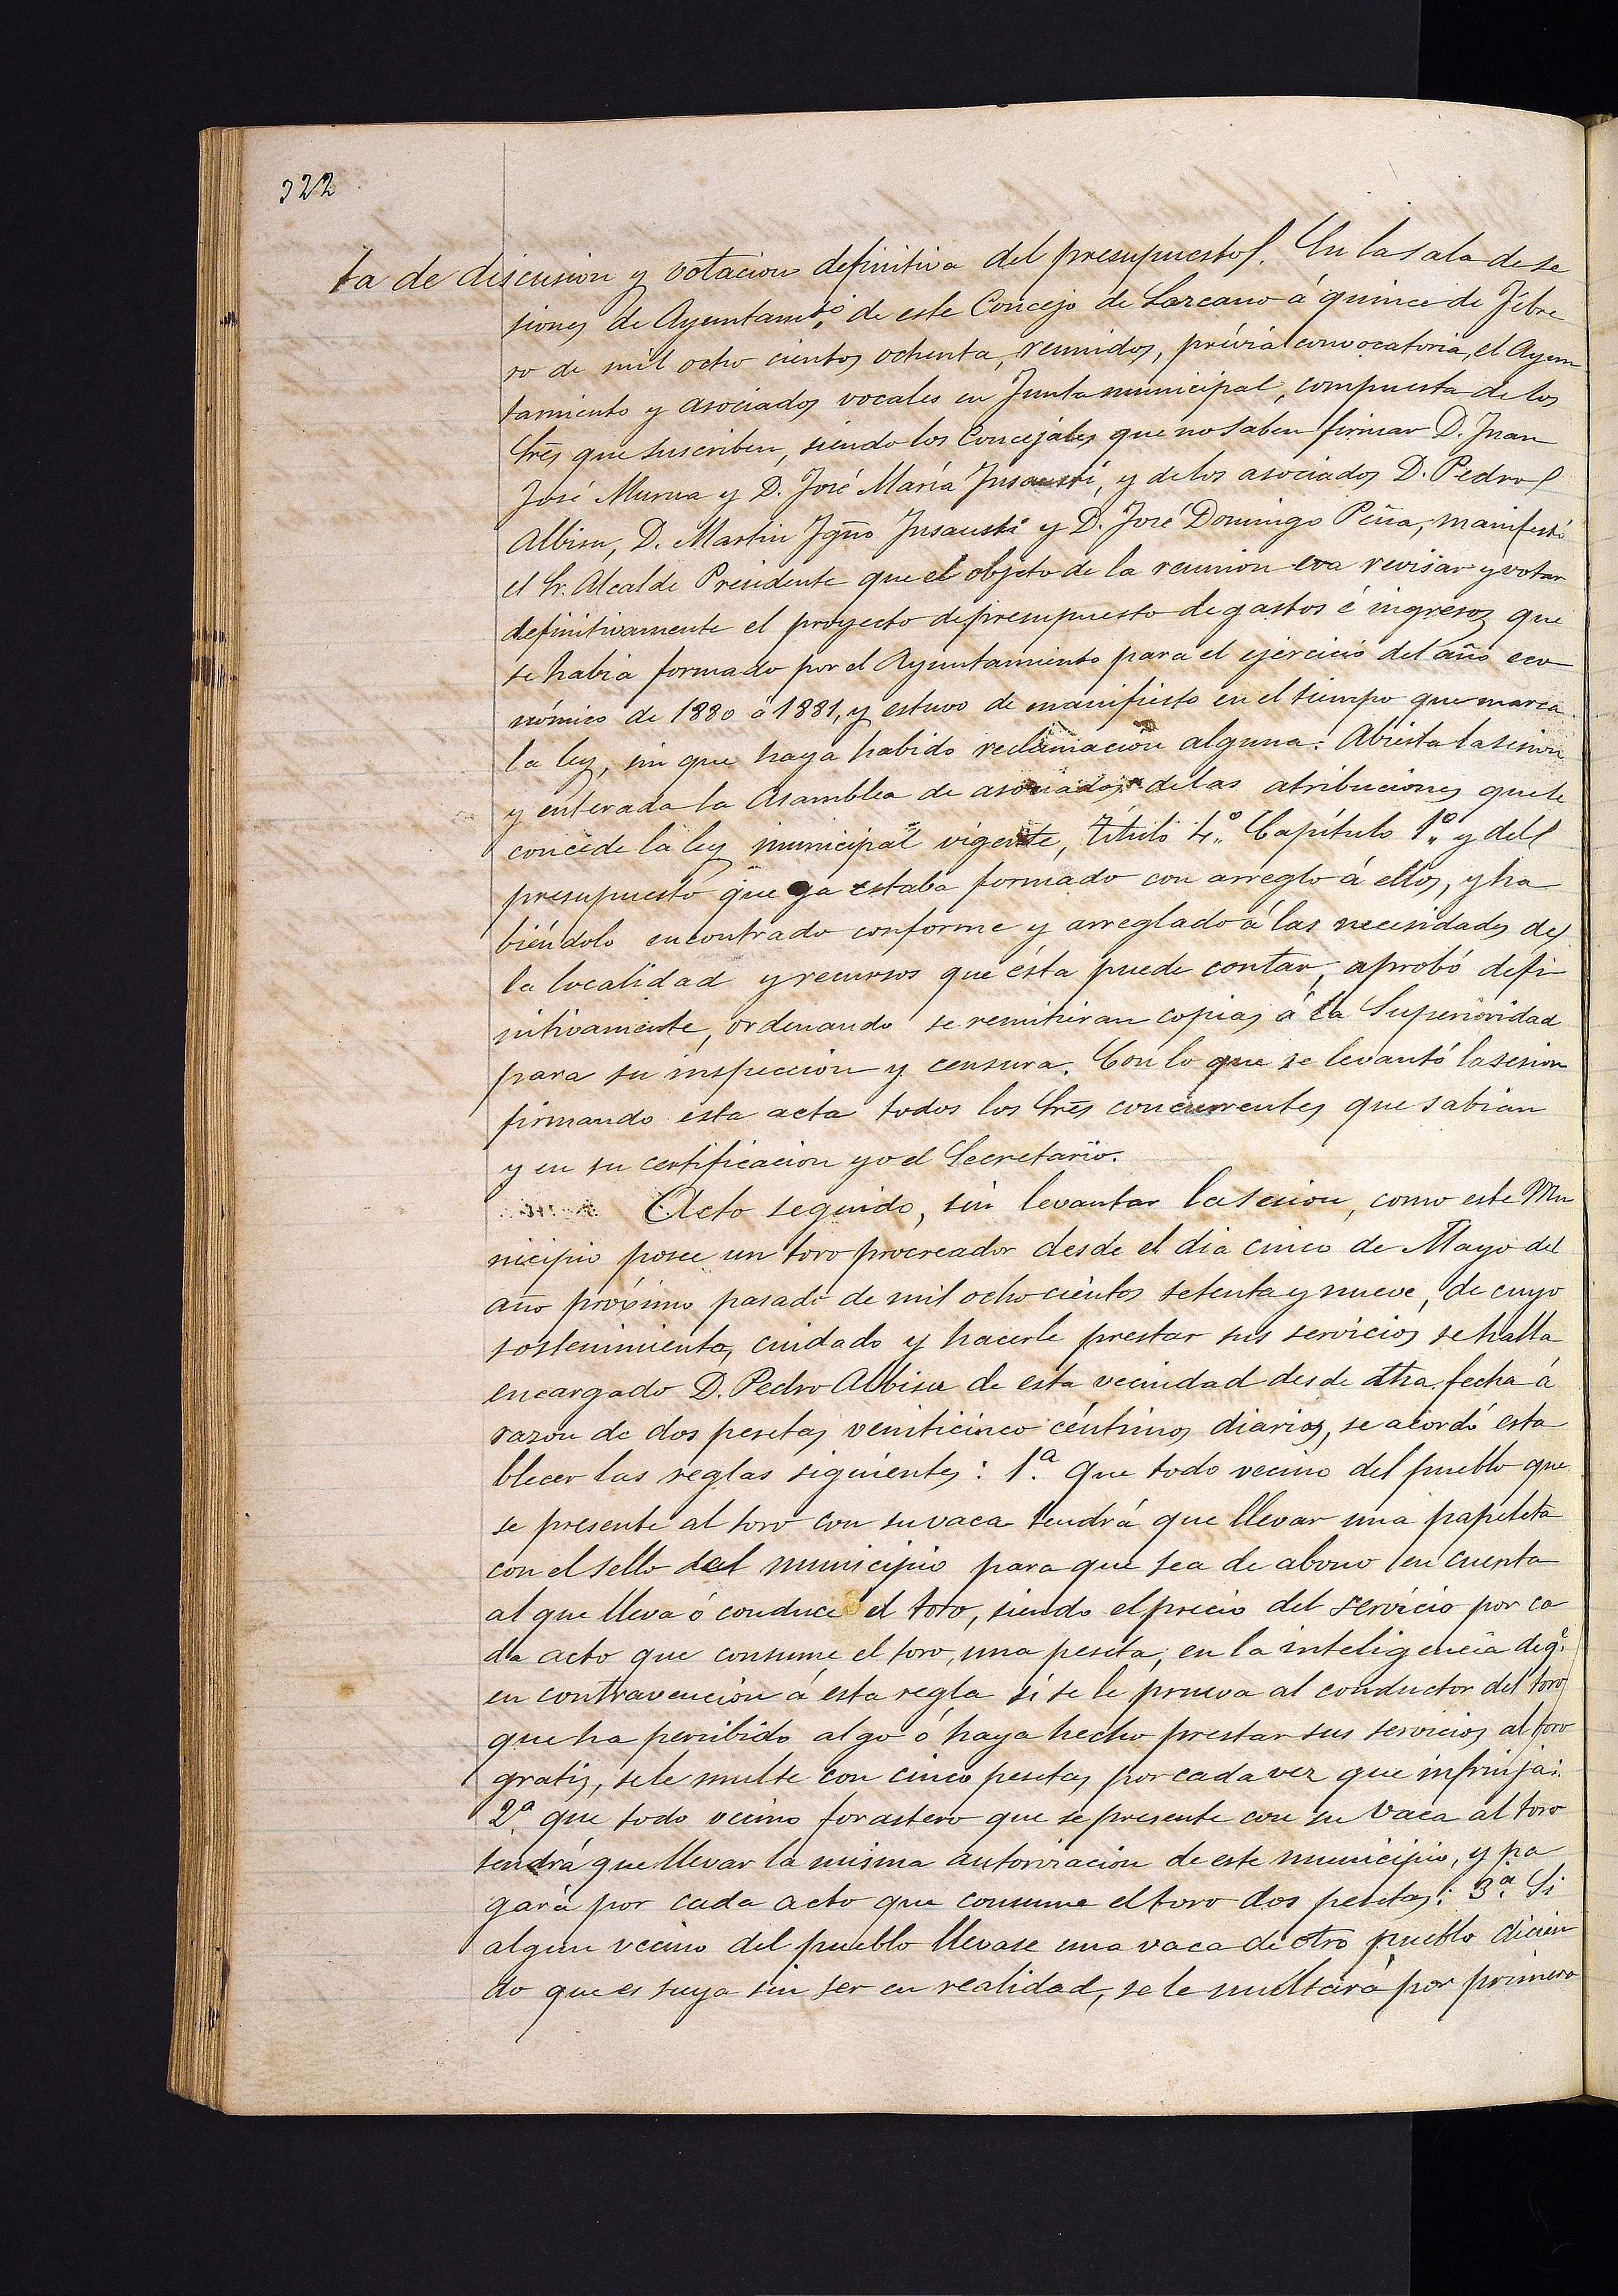 322
ta de discusion y votacion definitiva del presupuesto. En la sala de se
siones de Ayuntamto. de este Concejo de Lazcano á quince de Febre
ro de mil ocho cientos ochenta, reunidos, prévia convocatoria, el Ayun
tamiento y asociados vocales en Junta municipal, compuesta de los
Sres que suscriben, siendo los Concejales que no saben firmar D. Juan
José Murua y D. José María Insausti, y de los asociados D. Pedro
Albisu, D. Martin Igno Insausti y D. José Domingo Peña, manifestó
el Sr. Alcalde Presidente que el objeto de la reunion era revisar y votar
definitivamente el proyecto de presupuesto de gastos é ingresos que
se habia formado por el Ayuntamiento para el ejercicio del año eco
nómico de 1880 á 1881, y estuvo de manifiesto en el tiempo que marca
la ley, sin que haya habido reclamacion alguna. Abierta la sesion
y enterada la Asamblea de asociados de las atribuciones que le
concede la ley municipal vigente, título 4.º Capítulo 1.º y del
presupuesto que ya estaba formado con arreglo á ellos, y ha
biéndolo encontrado conforme y arreglado á las necesidades de
la localidad y recursos que ésta puede contar, aprobó defi
nitivamente, ordenando se remitieran copias á la Superioridad
para su inspeccion y censura. Con lo que se levantó la sesion
firmando esta acta todos los Sres concurrentes que sabian
y en su certificacion yo el Secretario.
Acto seguido, sin levantar la sesion, como este Mu
nicipio posee un toro procreador desde el dia cinco de Mayo del
año próximo pasado de mil ocho cientos setenta y nueve, de cuyo
sostenimiento, cuidado y hacerle prestar sus servicios se halla
encargado D. Pedro Albisu de esta vecindad desde dha. fecha á
razon de dos pesetas veinticinco céntimos diarios, se acordó esta
blecer las reglas siguientes: 1.ª Que todo vecino del pueblo que
se presente al toro con su vaca tendrá que llevar una papeleta
con el sello del municipio para que sea de abono en cuenta
al que lleva ó conduce el toro, siendo el precio del servicio por ca
da acto que consume el toro, una peseta, en la inteligencia de qe.
en contravencion á esta regla si se le prueva al conductor del toro
que ha percibido algo ó haya hecho prestar sus servicios al toro
gratis, se le multe con cinco pesetas por cada vez que infrinja:
2.ª que todo vecino forastero que se presente con su vaca al toro
tendrá que llevar la misma autorizacion de este municipio, y pa
gará por cada acto que consume el toro dos pesetas: 3.ª Si
algun vecino del pueblo llevase una vaca de otro pueblo dicien
do que es suya sin ser en realidad, se le multará por primera